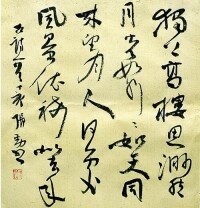 獨上高樓思渺然
月光如水水如天同
來望月人何處
風景依稀似去年